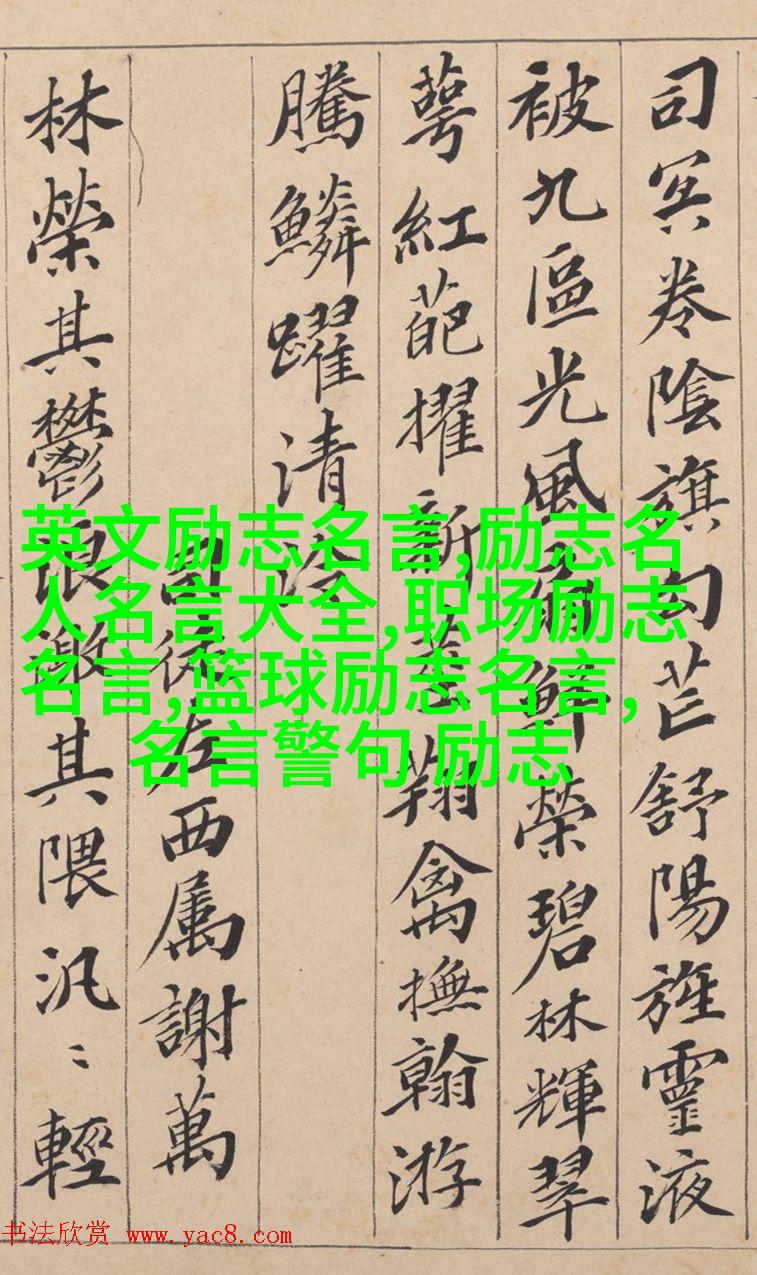 司冥卷陰旗勾芒舒陽旌靈液
被九區光風扇鮮榮碧林輝翠
萼紅葩擢新莖翔禽撫翰游
騰鱗躍清泠
司徒左西属謝萬
林榮其鬱浪激其隈汎〻輕
英文励志名言,励志名
人名言大全,职场励志
名言,篮球励志名言,
名言警句 励志
书法欣赏 www.yac8.com